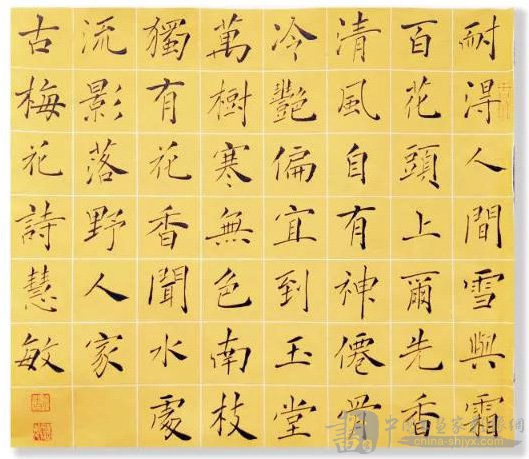 耐得人間雪與霜
百花頭上爾先香
清風自有神僊骨
冷豔偏宜到玉堂
萬樹寒無色南枝
獨有花香聞水處
流影落野人家
古梅花詩慧敏
china-shiyx.com